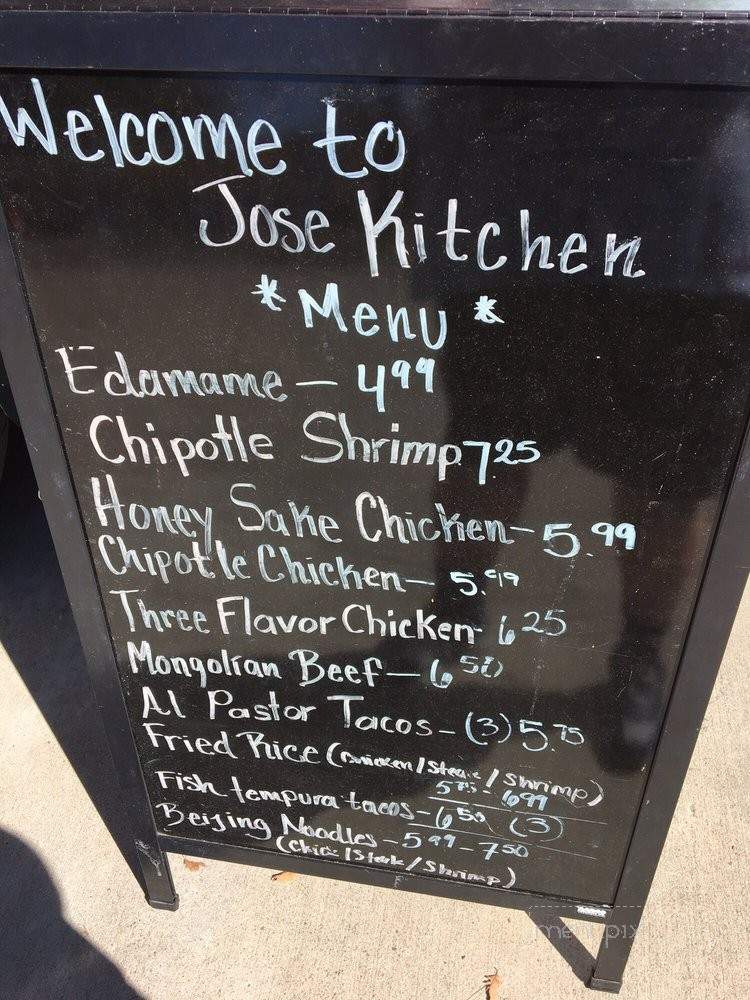 Welcome to
Jose Kitchen
* Menu *
Edamame - 4.99
Chipotle Shrimp 7.25
Honey Sake Chicken - 5.99
Chipotle Chicken - 5.99
Three Flavor Chicken - 6 25
Mongolian Beef - 6 50
Al Pastor Tacos - (3) 5.75
Fried Rice (Chicken / Steak / Shrimp)
5 75 - 6 99
Fish tempura tacos - 6 50 (3)
Beijing Noodles - 5 99 - 7 50
(Chic / Steak / Shrimp)
menupix